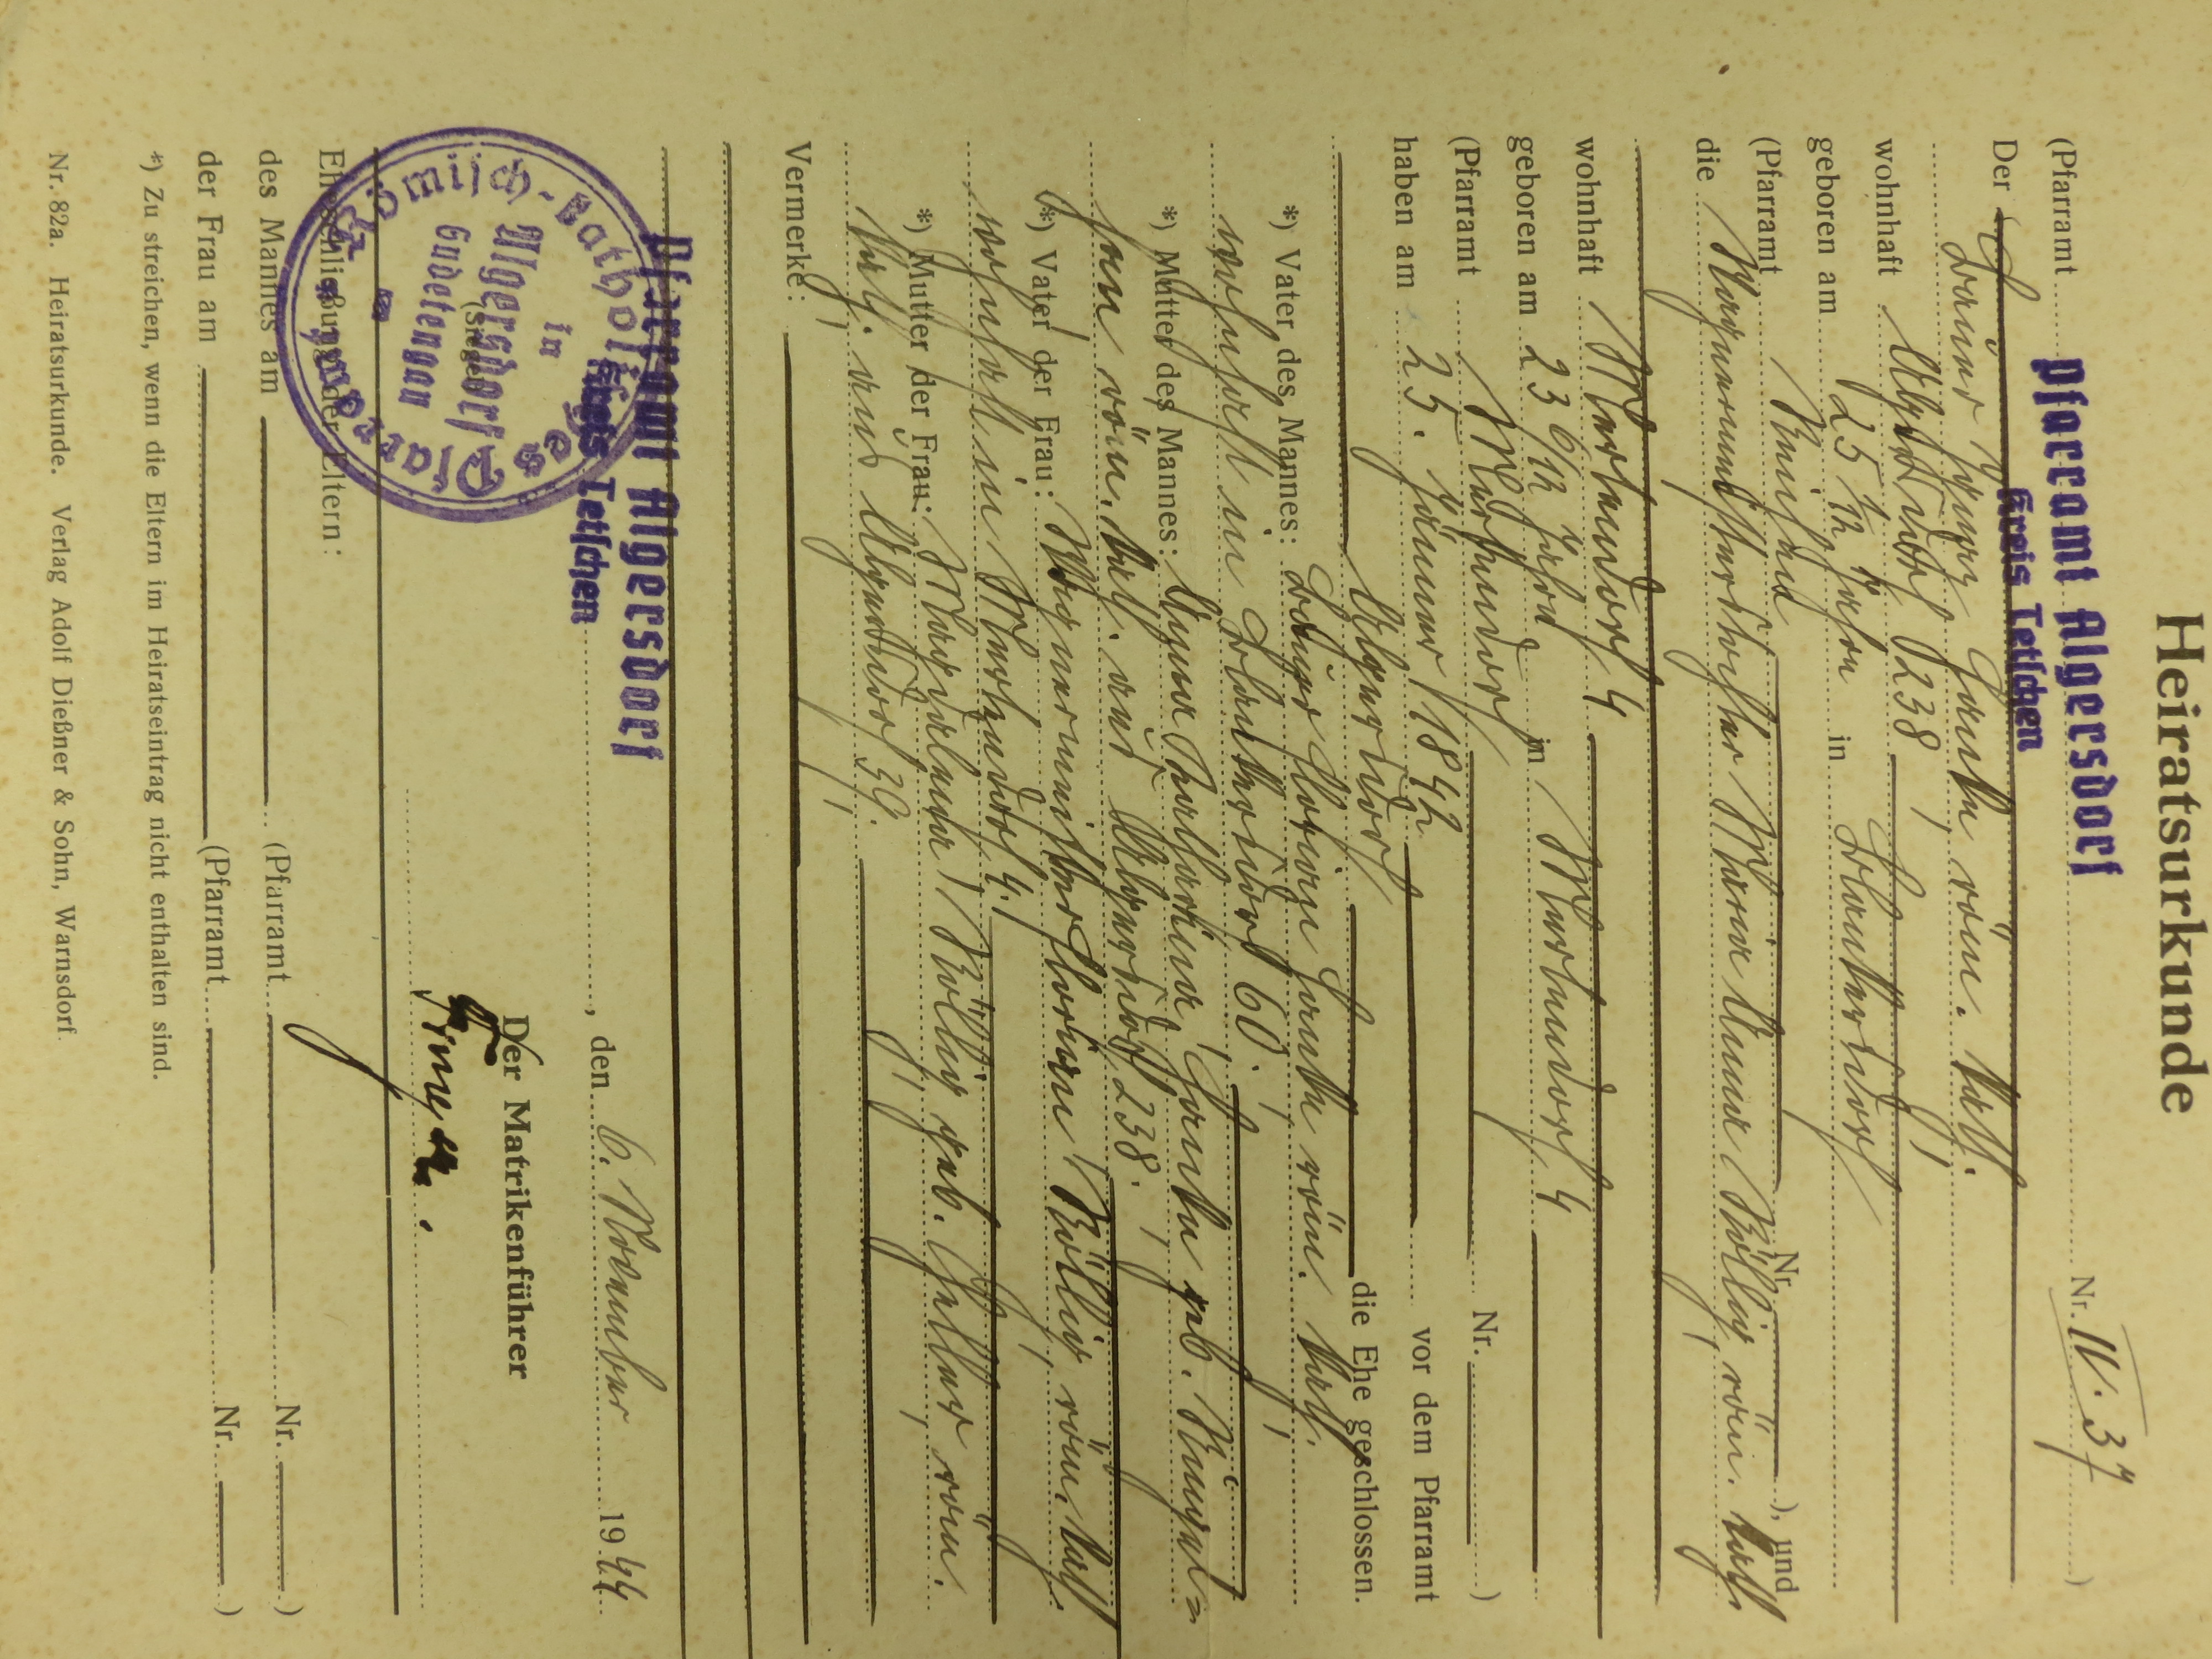 Heiratsurkunde
(Pfarramt Pfarramt Algersdorf Nr. IV. 37 )
Kreis Tetschen
Der
Bauer Ignaz Hanke, röm. kath.,
wohnhaft Algersdorf 238
geboren am 25 1/12 Jahre in Blankersdorf
(Pfarramt Reichen Nr. ), und
die Wagnermeisterstochter Maria Anna Röllig, röm. kath.
wohnhaft Mertendorf 4
geboren am 23 6/12 Jahre in Mertendorf 4
(Pfarramt Mertendorf Nr. )
haben am 25. Jänner 1842 vor dem Pfarramt
Algersdorf die Ehe geschlossen.
*) Vater des Mannes: Bauer Florian Hanke, röm. kath.,
wohnhaft in Blankersdorf 60;
*) Mutter des Mannes: Anna Katharina Hanke, geb. Ringel=
han, röm. kath. aus Algersdorf 238.
*) Vater der Frau: Wagnermeister Florian Röllig, röm. kath.
wohnhaft in Mertendorf 4.
*) Mutter der Frau: Magdalena Röllig, geb. Heller, röm.
kath., aus Algersdorf 39;
Vermerke:
Pfarramt Algersdorf
Kreis Tetschen , den 6. November 1944
Römisch-katholisches Pfarramt
in
Algersdorf
(Siegel)
Sudetengau
Der Matrikenführer
Eheschließung der Eltern:
des Mannes am (Pfarramt Nr. )
der Frau am (Pfarramt Nr. )
*) Zu streichen, wenn die Eltern im Heiratseintrag nicht enthalten sind.
Nr. 82a. Heiratsurkunde. Verlag Adolf Dießner & Sohn, Warnsdorf.